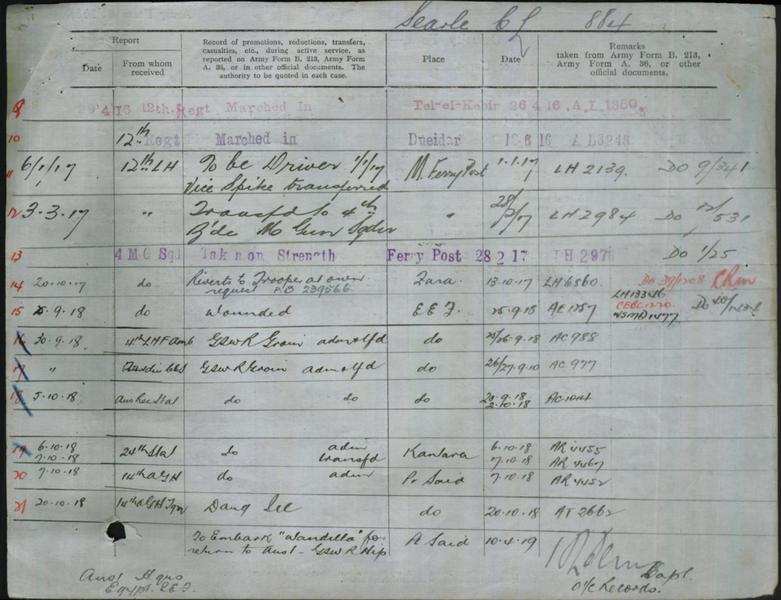 Searle C L 884
Report
Record of promotions, reductions, transfers, casualties, etc., during active service, as reported on Army Form B. 213, Army Form A. 36, or in other official documents. The authority to be quoted in each case.
Remarks
taken from Army Form B. 213, Army Form A. 36, or other official documents.
Date From whom received Place Date
9
29 4 16 12th Regt Marched In Tel-el-Kebir 26 4 16 A.I.1350
10 12th Regt Marched in Dueidar
11 6/1/17 12th LH To be Driver 1/1/17 M. Ferry Post 1.1.17 LH 2139 DO 9/341
Vice Spike transferred
12 3.3.17 " Transfd to 4th " 28/2/17 LH 2984 DO 12/531
Bde M Gun Sqdn
13 4 MG Sqd Taken on Strength Ferry Post 28 2 17 LH 297 DO 1/25
14 20.10.17 do Reverts to Trooper at own Zara 13.10.17 LH 6560
request P.O 239566
15 25.9.18 do Wounded E E F 25.9.18 AE 1757
LH 13346
16 20.9.18 4th LHF Amb GSW R Groin adm do AC 988
17 " GSW R Groin adm do AC 977
18 5.10.18 do do do 2.10.18
19 6.10.18 24th Stat do adm Kantara 6.10.18 AR 4455
7.10.18 transfd 7.10.18 AR 4467
20 7.10.18 14th AGH do adm P. Said 7.10.18 AR 4452
21 20.10.18 14th AGH Dang Ill do 20.10.18 AT 2662
To Embark "Wandilla" for P Said 10.4.19
return to Aust - GSW R Hip
Capt.
O/c Records.
Aust Hqrs
Egypt E.E.F.